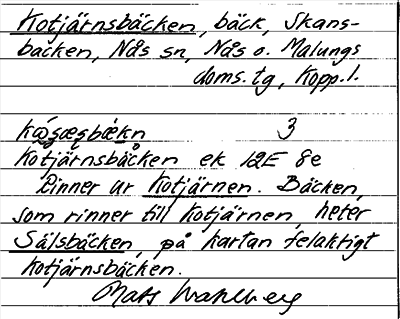 Kotjärnsbäcken, bäck, Skans-
backen, Nås sn, Nås o. Malungs
doms.tg, Kopp.l.
3
Kotjärnsbäcken ek 12E 8e
Rinner ur Kotjärnen. Bäcken,
som rinner till Kotjärnen, heter
Sälsbäcken, på kartan felaktigt
Kotjärnsbäcken.
Mats Wahlberg